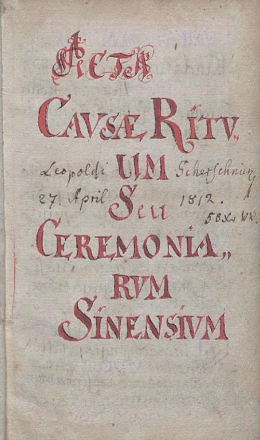 ACTA
CAVSÆ RITV„
UM
Leopoldi Scherschnick,
27 April 1812.
Seu
CEREMONIA„
RVM
SINENSIVM